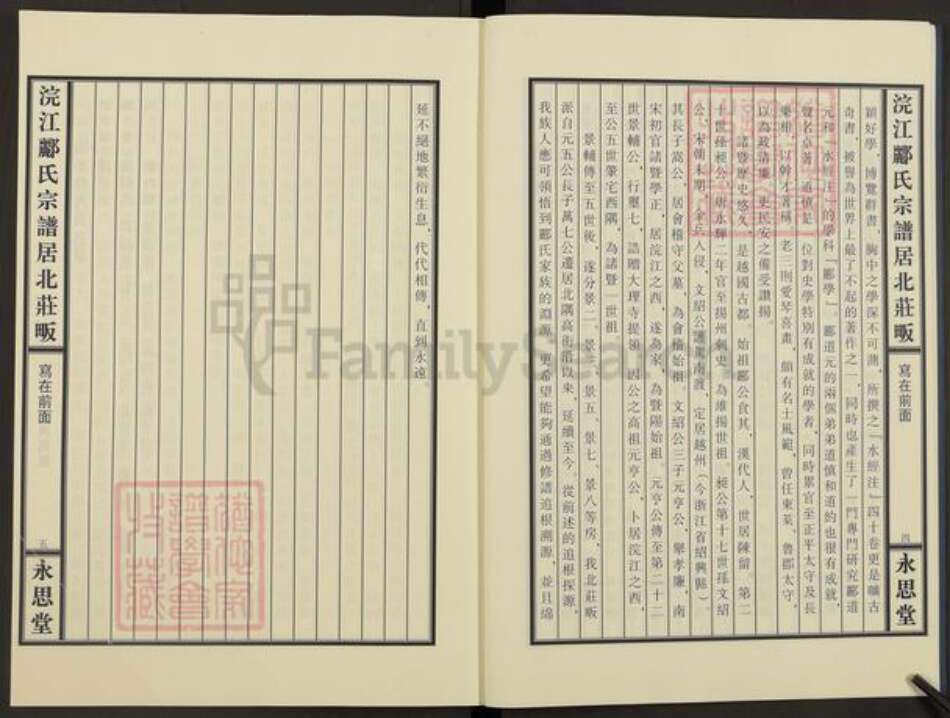 浣江酈氏宗譜居北莊畈
寫在前面
四
永思堂
穎好學，博覽群書，胸中之學深不可測，所撰之「水經注」四十卷更是曠古
奇書，被譽為世界上最了不起的著作之一，同時也產生了一門專門研究酈道
元和「水經注」的學科「酈學」。酈道元的兩個弟弟道慎和道約也很有成就，
聲名卓著。道慎是一位對史學特別有成就的學者，同時累官至正平太守及長
樂相，以幹才著稱。老三則愛琴喜畫，頗有名士風範，曾任東萊、魯郡太守，
以為政清廉、吏民安之備受讚揚。
諸暨歷史悠久，是越國古都。始祖酈公食其，漢代人，世居陳留。第二
十世孫昶公，唐永輝二年官至揚州刺史，為維揚世祖。昶公第十七世孫文紹
公，宋朝末期，金兵入侵，文紹公護駕南渡，定居越州（今浙江省紹興縣）。
其長子嵩公，居會稽守父墓，為會稽始祖。文紹公三子元亨公，舉孝廉，南
宋初官諸暨學正，居浣江之西，遂為家，為暨陽始祖。元亨公傳至第二十二
世景輔公，行壓七，誥贈大理寺提領，因公之高祖元亨公，卜居浣江之西，
至公五世肇宅西隅，為諸暨一世祖。
景輔傳至五世後，遂分景二、景三、景五、景七、景八等房，我北莊畈
派自元五公長子萬七公遷居北隅高街沿以來，延續至今。從前述的追根探源，
我族人應可領悟到酈氏家族的淵源，更希望能夠通過修譜追根溯源，並且綿
延不絕地繁衍生息，代代相傳，直到永遠。
浣江酈氏宗譜居北莊畈
寫在前面
五
永思堂
FamilySearch